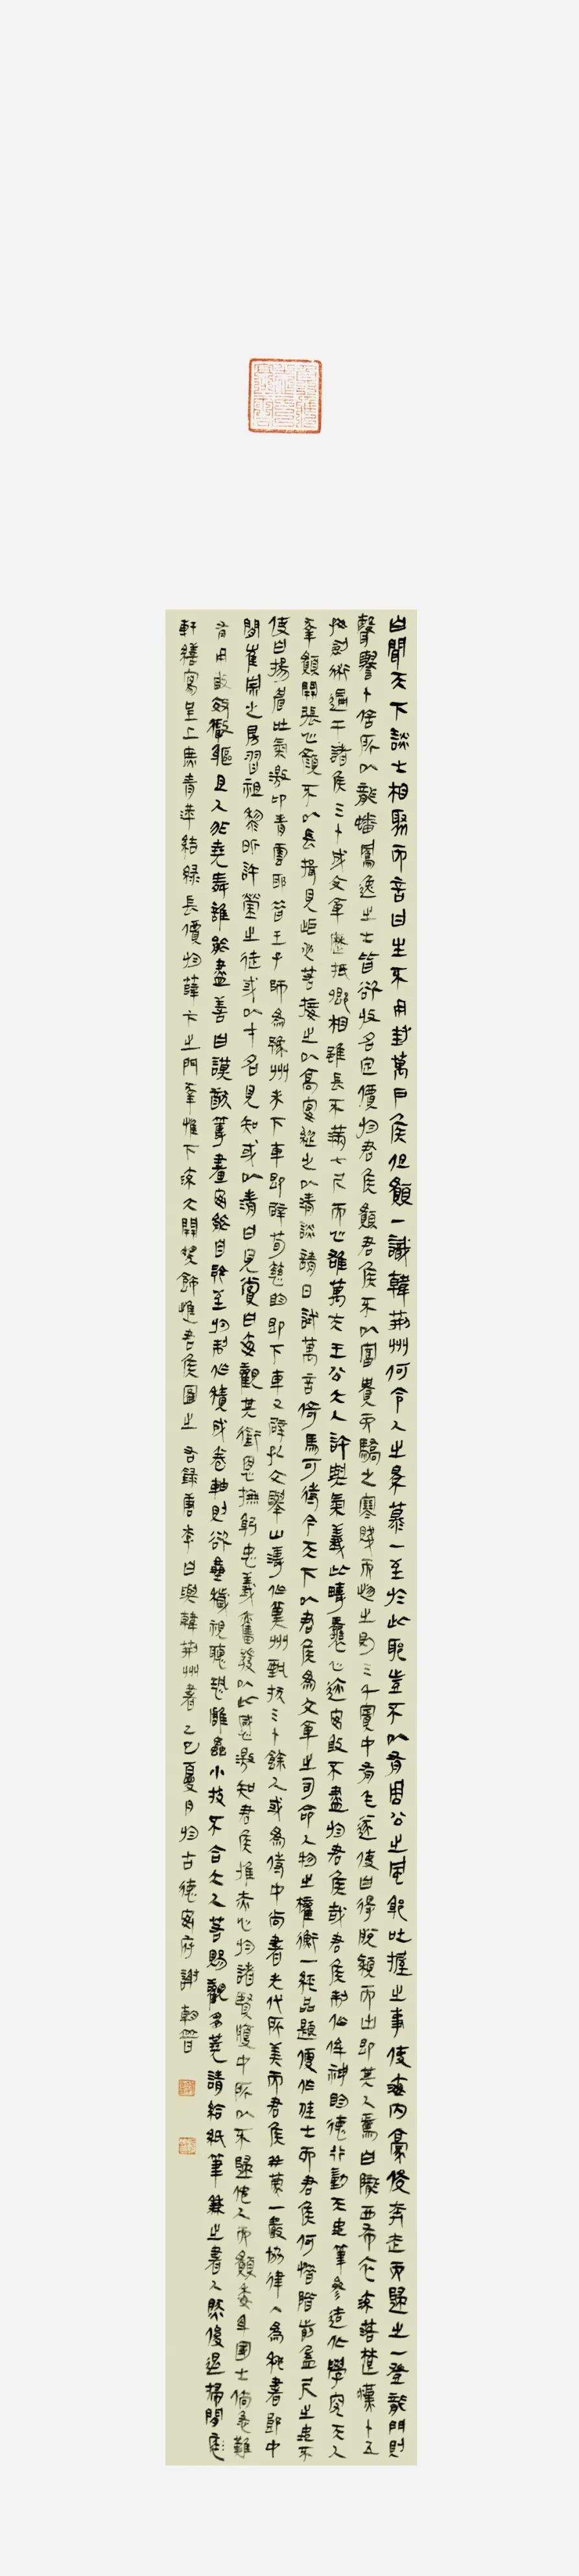 白聞天下談士相聚而言曰生不用封萬戶侯但願一識韓荊州何令人之景慕一至於此耶豈不以有周公之風躬吐握之事使海內豪俊奔走而歸之一登龍門則
聲譽十倍所以龍蟠鳳逸之士皆欲收名定價於君侯願君侯不以富貴而驕之寒賤而忽之則三千賓中有毛遂使白得脫穎而出即其人焉白隴西布衣流落楚漢十五
好劍術遍干諸侯三十成文章歷抵卿相雖長不滿七尺而心雄萬夫王公大人許與氣義此疇曩心跡安敢不盡於君侯哉君侯制作侔神明德行動天地筆參造化學究天人
幸願開張心顏不以長揖見拒必若接之以高宴縱之以清談請日試萬言倚馬可待今天下以君侯為文章之司命人物之權衡一經品題便作佳士而君侯何惜階前盈尺之地不
使白揚眉吐氣激昂青雲耶昔王子師為豫州未下車即辟荀慈明即下車又辟孔文舉山濤作冀州甄拔三十餘人或為侍中尚書先代所美而君侯亦薦一嚴協律入為秘書郎中
間崔宗之房習祖黎昕許瑩之徒或以才名見知或以清白見賞白每觀其銜恩撫躬忠義奮發以此感激知君侯推赤心於諸賢腹中所以不歸他人而願委身國士倘急難
有用敢效微軀且人非堯舜誰能盡善白謨猷籌畫安能自矜至於制作積成卷軸則欲塵穢視聽恐雕蟲小技不合大人若賜觀芻蕘請給紙筆兼之書人然後退掃閒
軒繕寫呈上庶青萍結綠長價於薛卞之門幸惟下流大開獎飾惟君侯圖之 右錄唐李白與韓荊州書 乙巳夏月於古德安府 謝朝晉